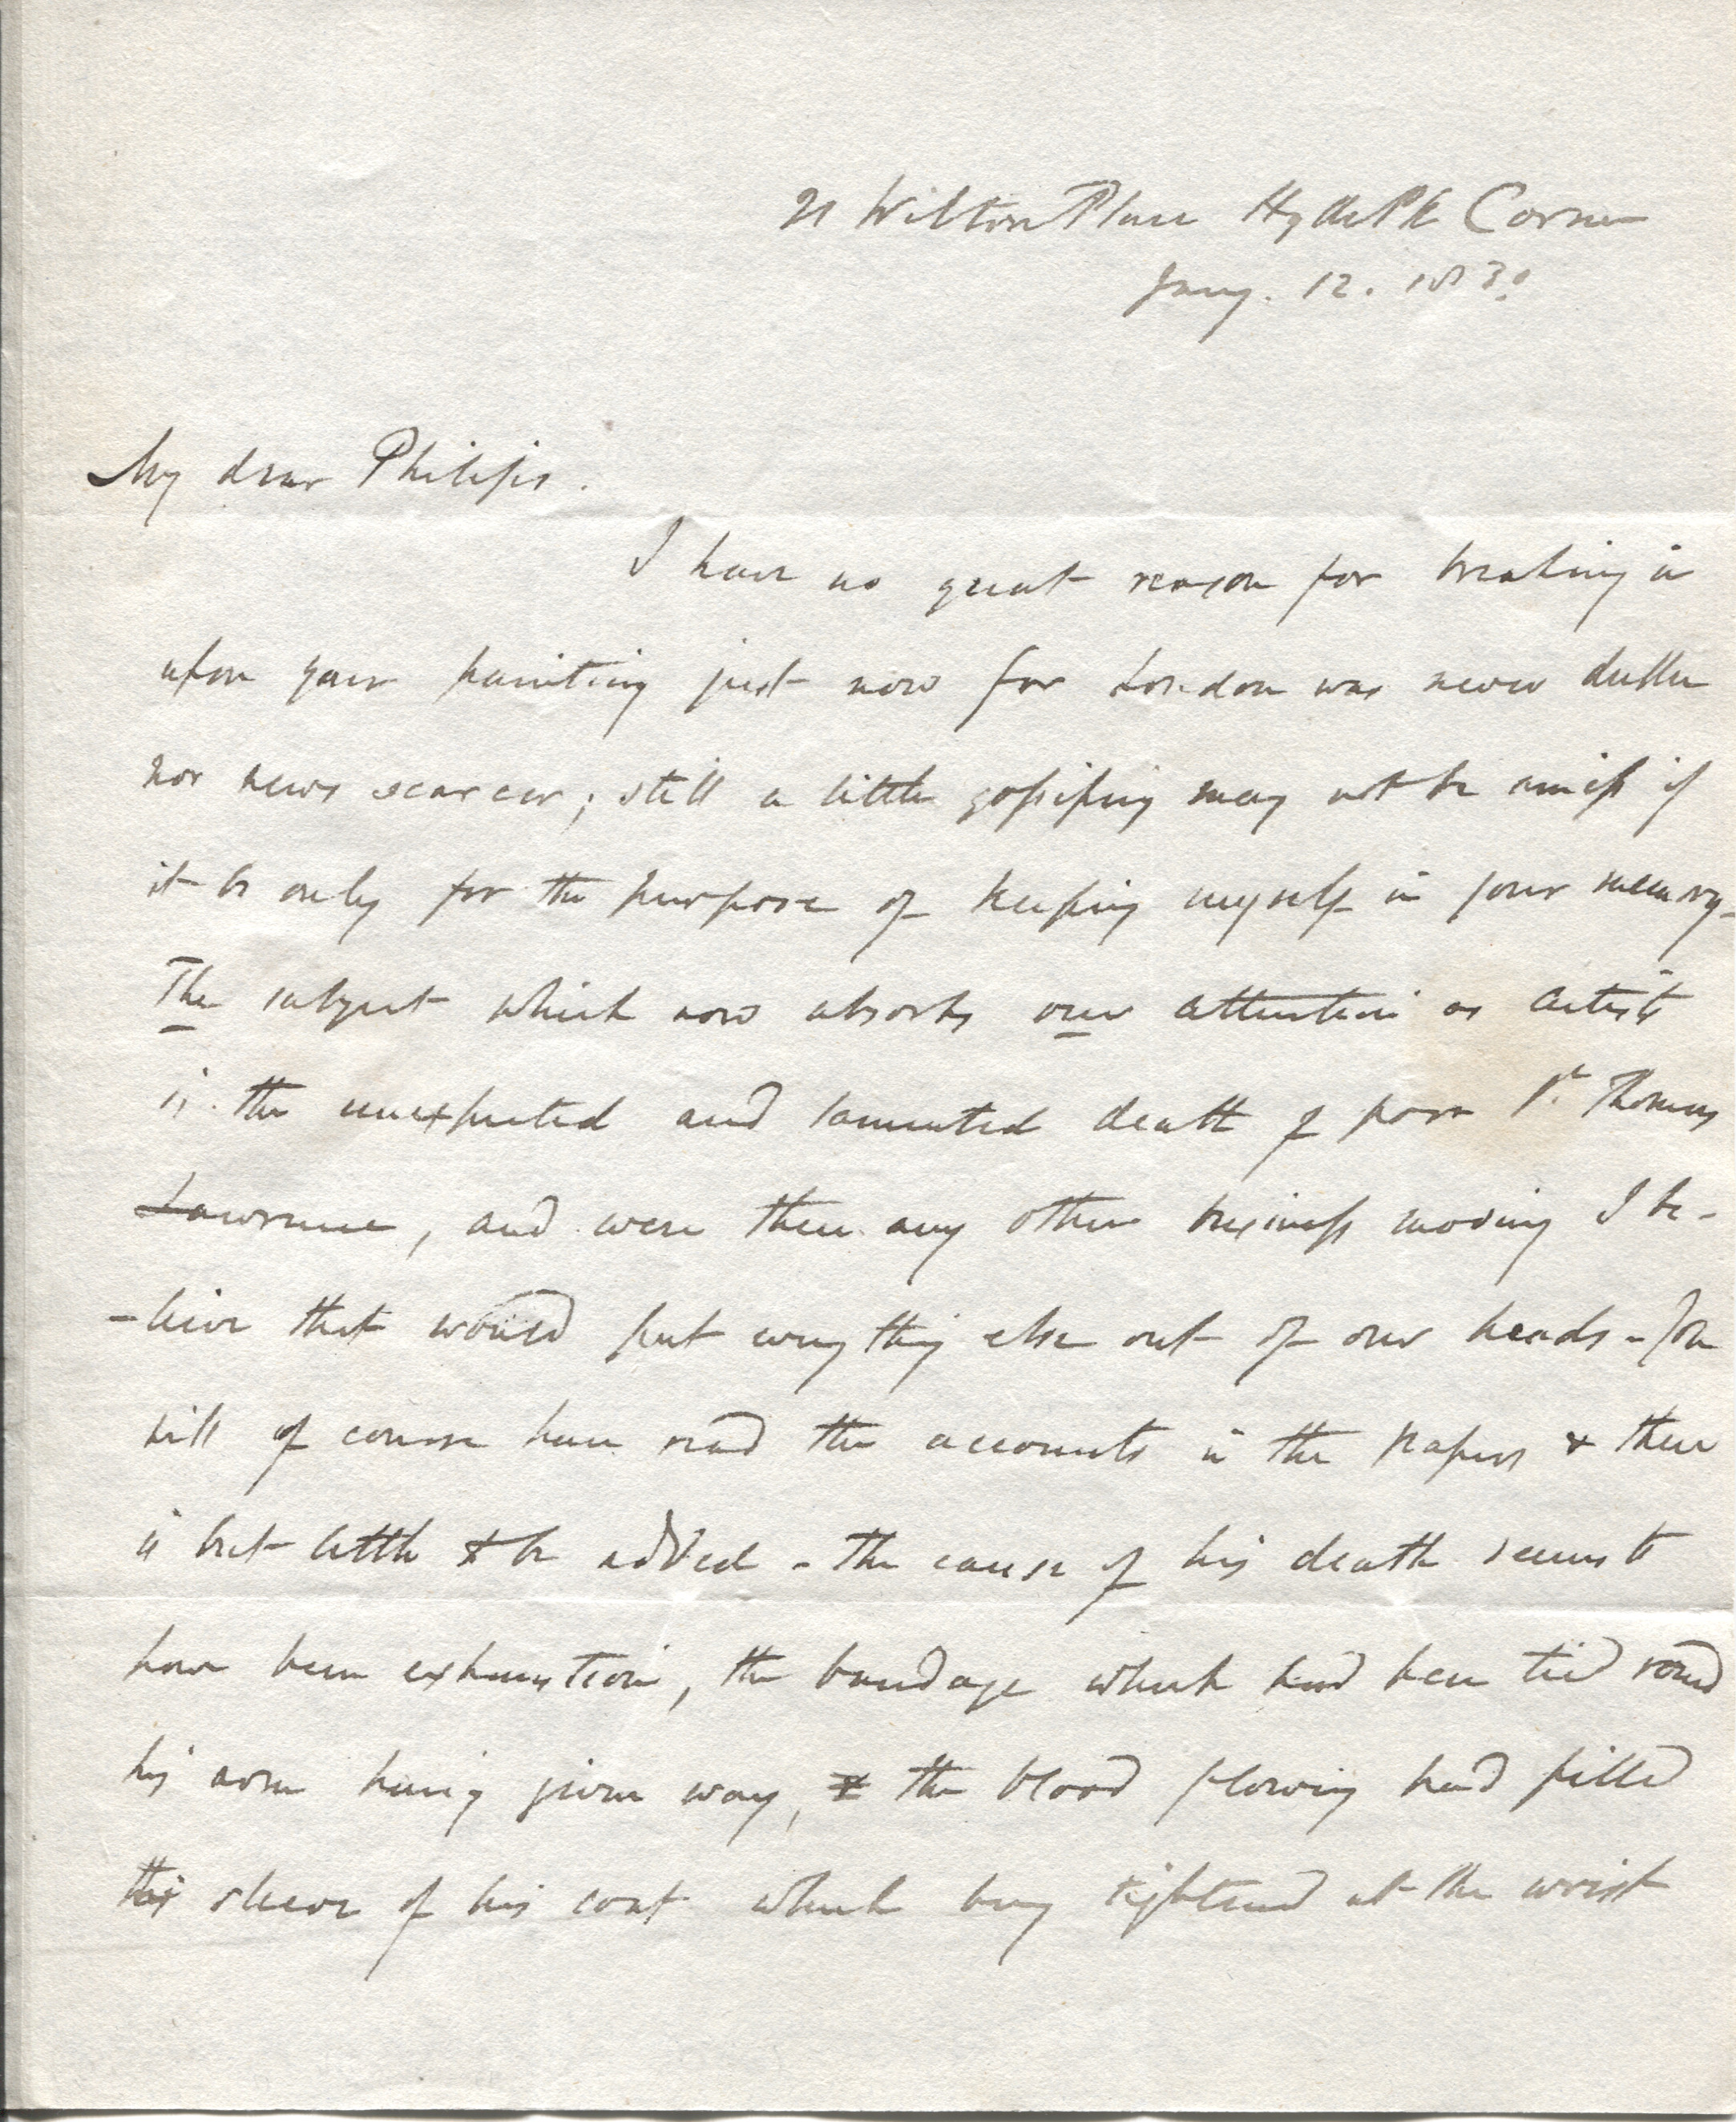 21 Wilton Place Hyde Pk Corner
Jany. 12. 1830
My dear Philips.
I have no great reason for breaking in
upon your painting just now for London was never duller
nor news scarcer; still a little gossiping may not be amiss if
it be only for the purpose of keeping myself in your memory-
The subject which now absorbs our attention as artists
is the unexpected and lamented death of poor Sr. Thomas
Lawrence, and were there any other business moving I be-
-lieve that would put every thing else out of our heads - You
will of course have read the accounts in the Papers & there
is but little to be added - the cause of his death seems to
have been exhaustion, the bandage which had been tied round
his arm having given way, & the blood flowing had filled
the sleeve of his coat which being tightened at the wrist